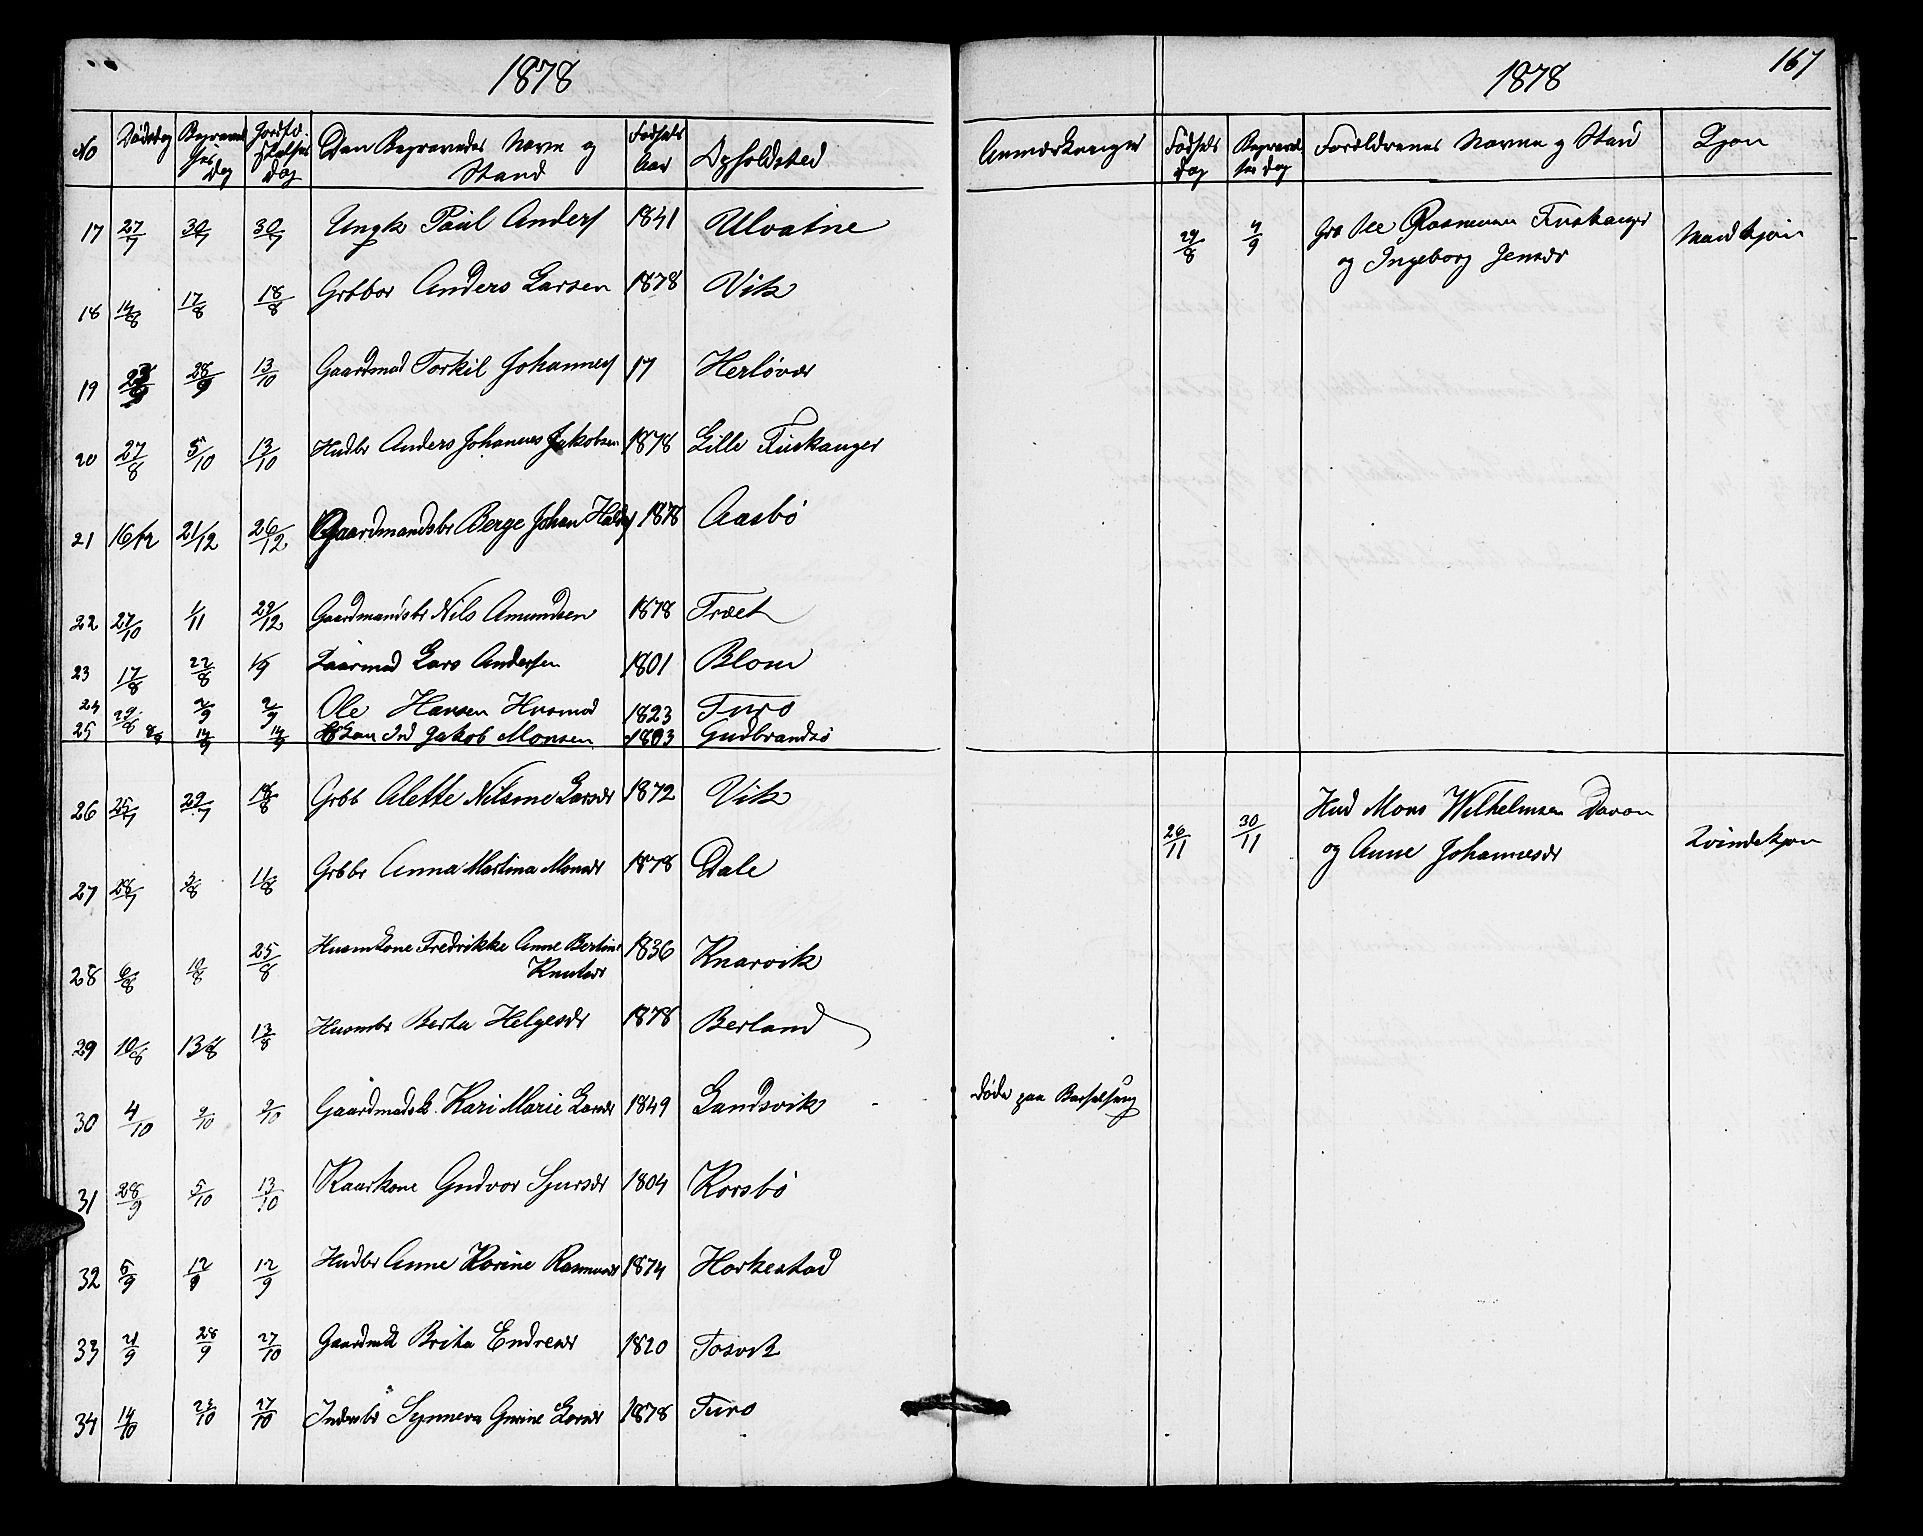 1878
No Dødsdag Begravelsesdag Jordfæstelsesdag Den Begravedes Navn og Stand Fødsels Aar Opholdsted
17 27/7 30/7 30/7 Ungk Paul Anders 1841 Ulvatne
18 14/8 17/8 18/8 Grbbar Anders Larsen 1878 Vik
19 28/9 13/10 Gaardmad Torkil Johannes 17 Herløvær
20 27/8 5/10 13/10 Husbr Anders Johannes Jakobsen 1878 Lille Fuskanger
21 16/12 21/12 26/12 Gaardmandsbr Berge Johan 1878 Aasbø
22 27/10 1/11 29/12 Gaardmandsbr Nils Amundsen 1878 Træet
23 17/8 22/8 1/9 Lars Andersen 1801 Blom
24 29/8 2/9 2/9 Ole Hansen Husmad 1823 Turo
25 14/9 14/9 Ind Jakob Monsen 1803 Gudbrandsø
26 25/7 29/7 18/8 Grbb Alette Nilsine Larsdr 1872 Vik
27 28/7 3/8 11/8 Grbbr Anna Martina Monsdr 1878 Dale
28 6/8 10/8 25/8 Husmkone Fredrikke Anne Bertine
Knutsdr 1836 Knarvik
29 10/8 13/8 13/8 Husmbr Berta Helgesdr 1878 Berland
30 4/10 9/10 9/10 Gaardmadsk. Kari Marie Larsdr 1849 Landsvik
31 28/9 5/10 13/10 Kaarkone Gudvor Sjursdr 1804 Korsbø
32 5/9 12/9 12/9 Husbr Anne Karine Rasmusdr 1874 Horkestad
33 21/9 28/9 27/10 Gaardmk Brita Endresdr 1820 Tosvik
34 14/10 23/10 27/10 Indersbr Synneva Gurine Larsdr 1878 Turo
1878 167
Anmærkninger Fødselsdag Begravelsesdag Forældrenes Navne og Stand Kjøn
29/8 4/9 Grb Ole Rasmusen Fuskanger
og Ingeborg Jensdr Mandkjøn
26/11 30/11 Hus Mons Wilhelmsen
og Anne Johannesdr Kvindekjøn
døde paa Barselseng